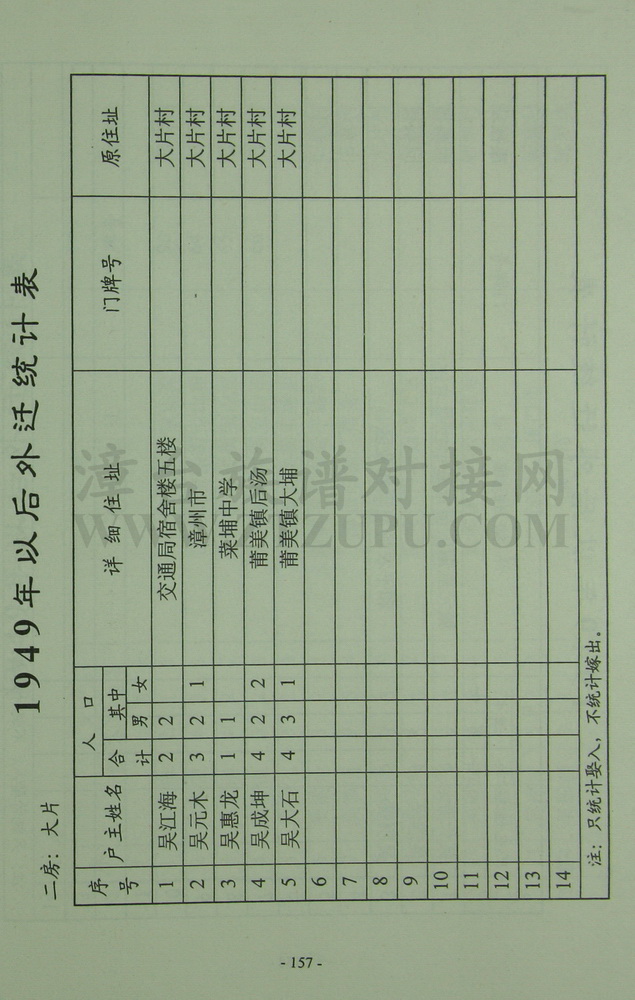 1949年以后外迁统计表
二房：大片
序号 户主姓名 人口 详细住址 门牌号 原住址
合计 其中
男 女
1 吴江海 2 2 交通局宿舍楼五楼 大片村
2 吴元木 3 2 1 漳州市 大片村
3 吴惠龙 1 1 菜埔中学 大片村
4 吴成坤 4 2 2 莆美镇后汤 大片村
5 吴大石 4 3 1 莆美镇大埔 大片村
6
7
8
9
10
11
12
13
14
注：只统计娶入，不统计嫁出。
- 157 -
漳台族谱对接网